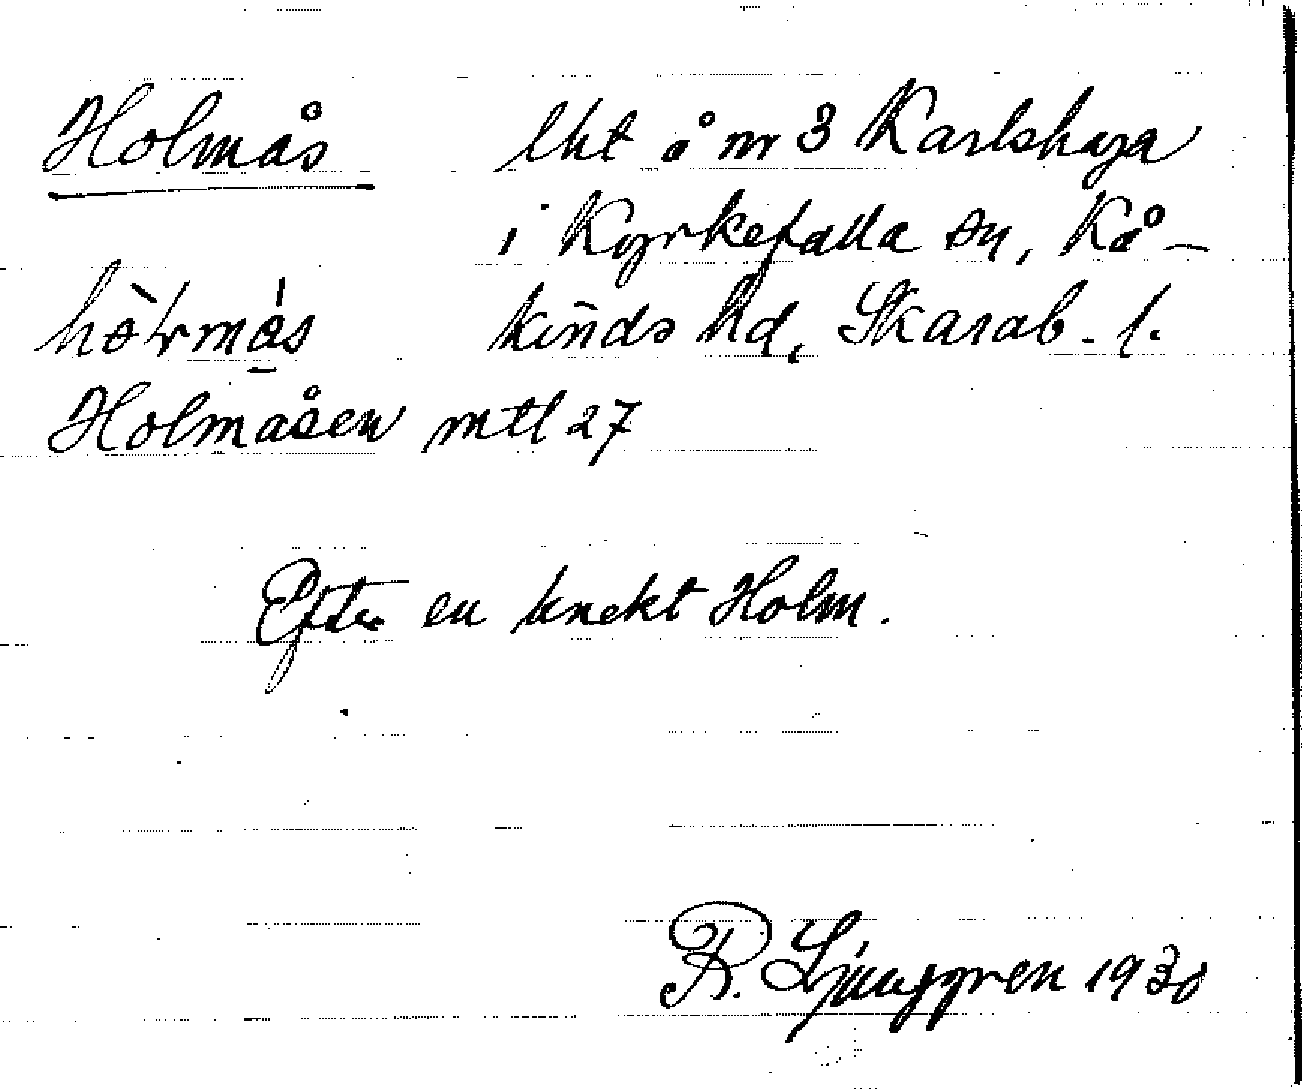 Holmås lht å nr 3 Karlshaga
i Kyrkefalla sn, Kå-
kinds hd, Skarab. l.
Holmåsen mtl 27
Efter en knekt Holm.
R. Ljunggren 1930